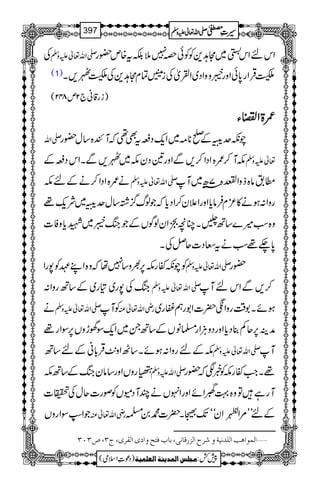 سیرتِ مصطفیٰ صلی اللہ تعالیٰ علیہ وسلم 397
اس لئے اس بستی میں مجاہدین کا کوئی حصہ نہیں بلکہ یہ خاص حضور صلی اللہ تعالیٰ علیہ وسلم کی
ملکیت قرار پائی اور خیبر اور وادی القریٰ کی زمینیں تمام مجاہدین کی ملکیت ٹھہریں۔ (1)
(زرقانی ج ۲ ص ۲۴۸)
عمرۃ القضاء
چونکہ حدیبیہ کے صلح نامہ میں ایک دفعہ یہ بھی تھی کہ آئندہ سال حضور صلی اللہ
تعالیٰ علیہ وسلم مکہ آکر عمرہ ادا کریں گے اور تین دن مکہ میں ٹھہریں گے۔ اس دفعہ کے
مطابق ماہ ذوالقعدہ ۷ھ میں آپ صلی اللہ تعالیٰ علیہ وسلم نے عمرہ ادا کرنے کے لئے مکہ
روانہ ہونے کا عزم فرمایا اور اعلان کرا دیا کہ جو لوگ گزشتہ سال حدیبیہ میں شریک تھے
وہ سب میرے ساتھ چلیں۔ چنانچہ بجز ان لوگوں کے جو جنگ خیبر میں شہید یا وفات
پا چکے تھے سب نے یہ سعادت حاصل کی۔
حضور صلی اللہ تعالیٰ علیہ وسلم کو چونکہ کفار مکہ پر بھروسا نہیں تھا کہ وہ اپنے عہد کو پورا
کریں گے اس لئے آپ صلی اللہ تعالیٰ علیہ وسلم جنگ کی پوری تیاری کے ساتھ روانہ
ہوئے۔ بوقت روانگی حضرت ابورہم غفاری رضی اللہ تعالیٰ عنہ کو آپ صلی اللہ تعالیٰ علیہ وسلم نے
مدینہ پر حاکم بنا دیا اور دو ہزار مسلمانوں کے ساتھ جن میں ایک سو گھوڑوں پر سوار تھے
آپ صلی اللہ تعالیٰ علیہ وسلم مکہ کے لئے روانہ ہوئے۔ ساٹھ اونٹ قربانی کے لئے ساتھ
تھے۔ جب کفار مکہ کو خبر لگی کہ حضور صلی اللہ تعالیٰ علیہ وسلم ہتھیاروں اور سامان جنگ کے ساتھ مکہ
آ رہے ہیں تو وہ بہت گھبرائے اور انہوں نے چند آدمیوں کو صورت حال کی تحقیقات
کے لئے ''مرالظہران'' تک بھیجا۔ حضرت محمد بن مسلمہ رضی اللہ تعالیٰ عنہ جو اسپ سواروں
1……المواهب اللدنية و شرح الزرقانی، باب فتح وادی القری، ج۳، ص۳۰۳
پیش کش: مجلس المدینۃ العلمیۃ (دعوت اسلامی)